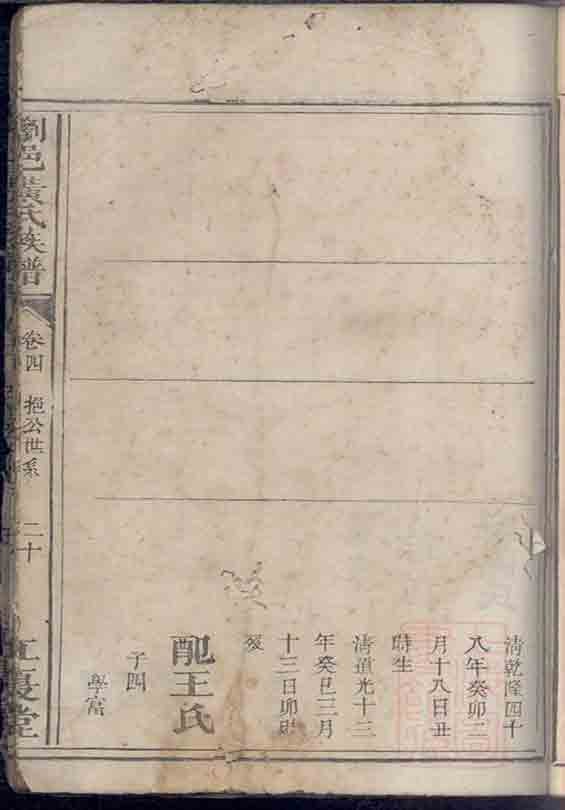 清乾隆四十
八年癸卯二
月十八日丑
時生
清道光十三
年癸巳三月
十三日卯時
歿
配王氏
子四
學富
劉邑黃氏族譜
卷四
抱公世系
二十
江夏堂